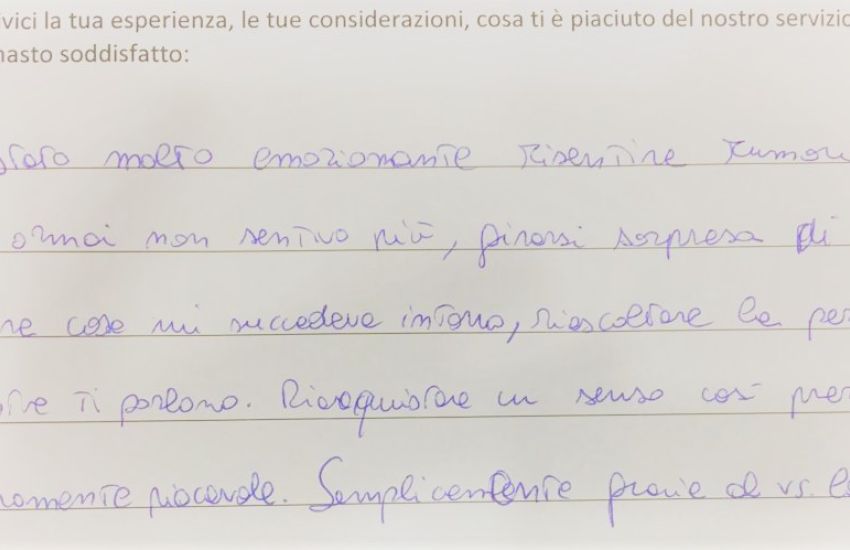 ivici la tua esperienza, le tue considerazioni, cosa ti è piaciuto del nostro servizio
masto soddisfatto:
stato molto emozionante risentire rumori
ormai non sentivo più, girarsi sorpresa di
re cose mi succedeva intorno, riascoltare le per
ti parlano. Riacquistare un senso così pre
namente piacevole. Semplicemente grazie al vs.